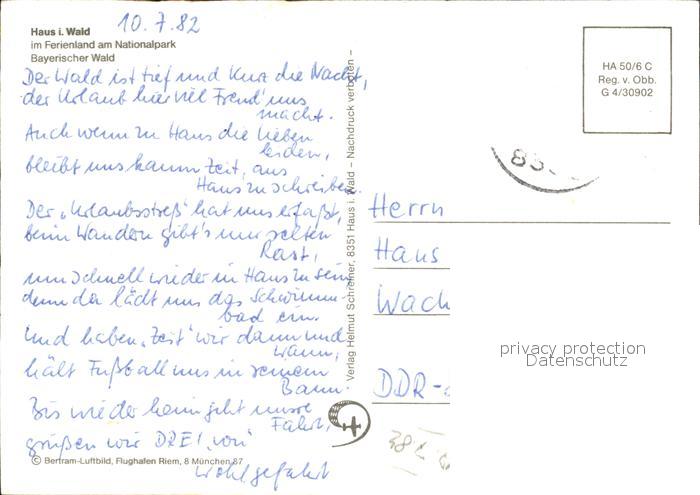 Haus i. Wald
10.7.82
im Ferienland am Nationalpark
Bayerischer Wald
Der Wald ist tief und kurz die Nacht,
der Urlaub hier viel Freud' uns
macht.
Auch wenn zu Haus die Lieben
leiden,
bleibt uns kaum Zeit, aus
Haus zu schreiben.
Der "Urlaubsstreß" hat uns erfaßt,
beim Wandern gibt's nur selten
Rast,
um schnell wieder in Haus zu sein
denn da lädt uns das Schwimm-
bad ein.
Und haben "Zeit" wir dann und
wann,
hält Fußball uns in seinem
Bann.
Bis wieder heim geht unsre
Fahrt,
grüßen wir DREI, von
Wohlgefahrt
© Bertram-Luftbild, Flughafen Riem, 8 München 87
Verlag Helmut Schreiner, 8351 Haus i. Wald – Nachdruck verboten –
HA 50/6 C
Reg. v. Obb.
G 4/30902
835
Herrn
Hans
Wach
DDR-
privacy protection
Datenschutz